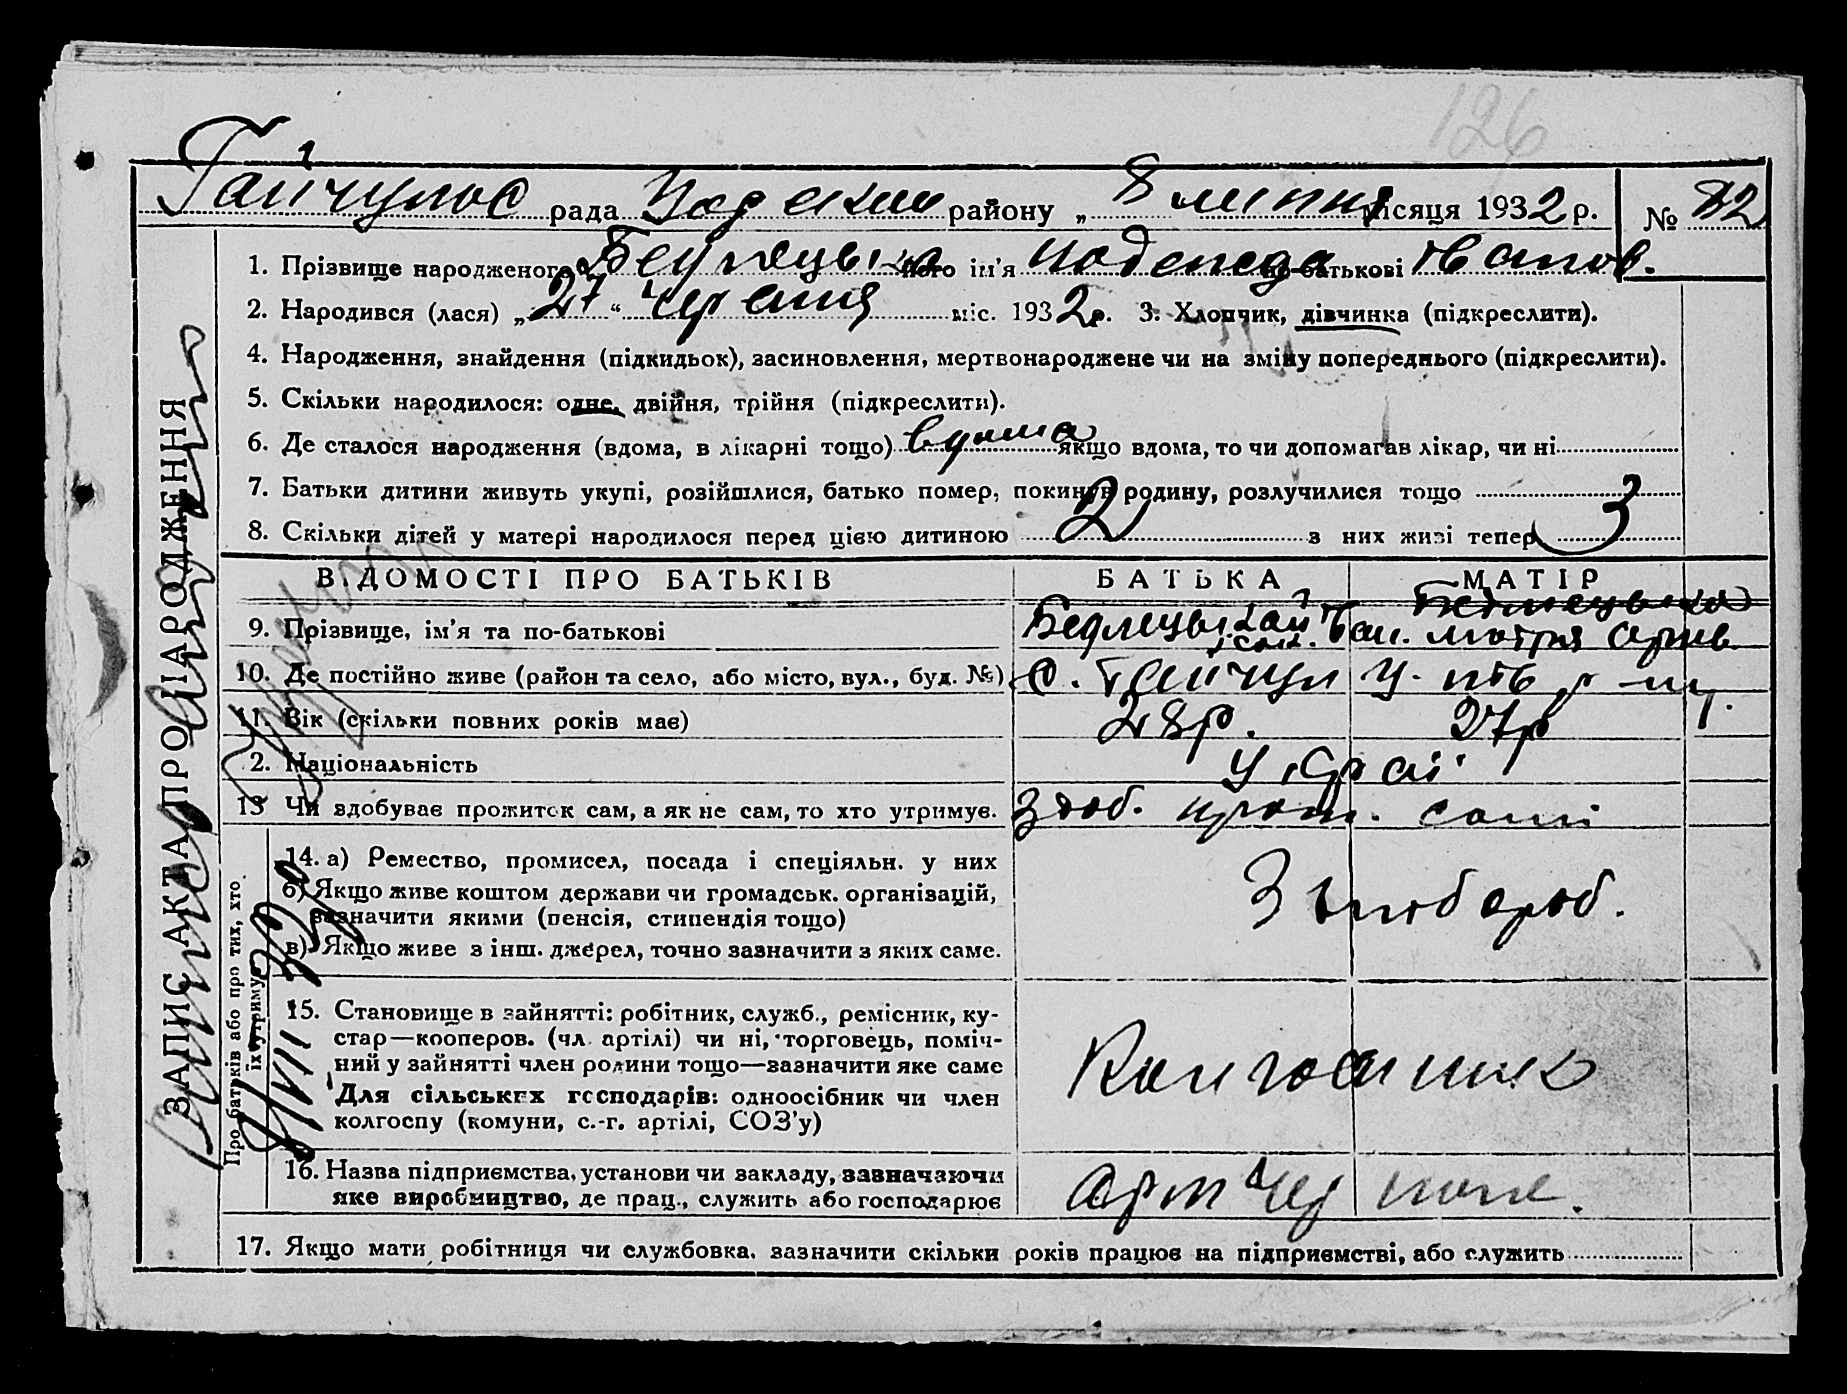 126
Гайчульс рада району „ 8 липня місяця 1932 р. № 82
1. Прізвище народженого його ім'я Надежда по-батькові Іванов.
2. Народився (лася) „ 27 “ червня міс. 1932 р. 3. Хлопчик, дівчинка (підкреслити).
4. Народження, знайдення (підкидьок), засиновлення, мертвонароджене чи на зміну попереднього (підкреслити).
5. Скільки народилося: одне, двійня, трійня (підкреслити).
6. Де сталося народження (вдома, в лікарні тощо) вдома якщо вдома, то чи допомагав лікар, чи ні
7. Батьки дитини живуть укупі, розійшлися, батько помер, покинув родину, розлучилися тощо
8. Скільки дітей у матері народилося перед цією дитиною 2 з них живі тепер 3
ЗАПИС АКТА ПРО НАРОДЖЕННЯ
ВІДОМОСТІ ПРО БАТЬКІВ БАТЬКА МАТІР
9. Прізвище, ім'я та по-батькові Іван. Мотря
10. Де постійно живе (район та село, або місто, вул., буд. №) с. Гайчул
11. Вік (скільки повних років має) 28р. 27р
2. Національність Україн
13 Чи здобуває прожиток сам, а як не сам, то хто утримує. Здоб. прож. самі
Про батьків або про тих, хто їх утримує
14. а) Ремество, промисел, посада і спеціяльн. у них
б) Якщо живе коштом держави чи громадськ. організацій,
зазначити якими (пенсія, стипендія тощо)
в) Якщо живе з інш. джерел, точно зазначити з яких саме.
Хлібороб.
15. Становище в зайнятті: робітник, служб., ремісник, ку-
стар—кооперов. (чл. артілі) чи ні, торговець, поміч-
ний у зайнятті член родини тощо—зазначити яке саме
Для сільських господарів: одноосібник чи член
колгоспу (комуни, с.-г. артілі, СОЗ'у)
Колгоспник
16. Назва підприємства, установи чи закладу, зазначаючи
яке виробництво, де прац., служить або господарює
Арт Чер
17. Якщо мати робітниця чи службовка, зазначити скільки років працює на підприємстві, або служить